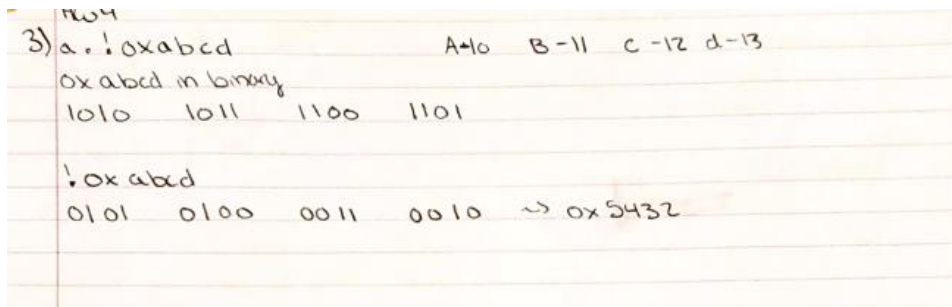 HW4
3) a. !0xabcd A-10 B-11 C-12 d-13
0xabcd in binary
1010 1011 1100 1101
!0xabcd
0101 0100 0011 0010 ⇝ 0x5432